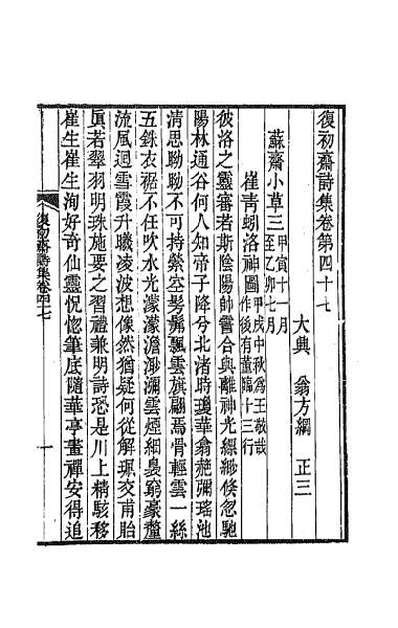 復初齋詩集卷第四十七
大典 翁方綱 正三
蘇齋小草三甲寅十一月至乙卯七月
崔青蚓洛神圖甲戌中秋為王敬哉作後有董臨十三行
彼洛之靈審若斯陰陽帥霤合與離神光縹緲倏忽馳
陽林通谷何人知帝子降兮北渚時瓊華翕赩彌瑤池
清思䀏䀏不可持縈空髣髴飄雲旗翩焉骨輕雲一絲
五銖衣裾不任吹水光濛濛澹渺瀰雲煙細臮窮豪釐
流風迴雪霞升曦淩波想像然猶疑何從解珮交甫貽
眞若翠羽明珠施要之習禮兼明詩恐是川上精駭移
崔生崔生洵好奇仙靈怳惚筆底隨華亭畫禪安得追
復初齋詩集卷四十七
一